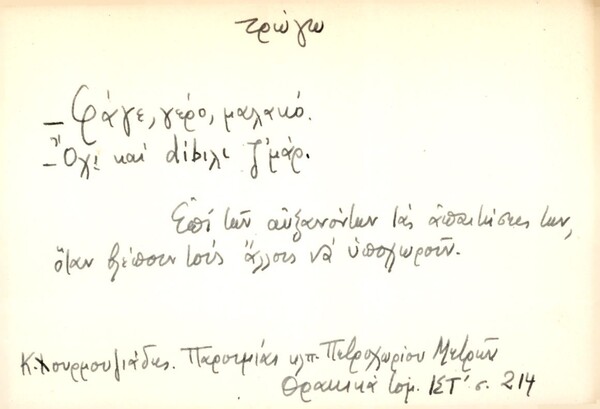 τρώγω
– Φάγε, γέρο, μαλακό.
– Ὄχι καὶ dίbιλι ζ'μάρ.
Ἐπὶ τῶν αὐξανόντων τὰς ἀπαιτήσεις των,
ὅταν βλέπουν τοὺς ἄλλους νὰ ὑποχωροῦν.
Κ. Χουρμουζιάδης. Παροιμίαι κλπ. Πετροχωρίου Μετρῶν
Θρακικὰ τομ. ΙΣΤ' σ. 214